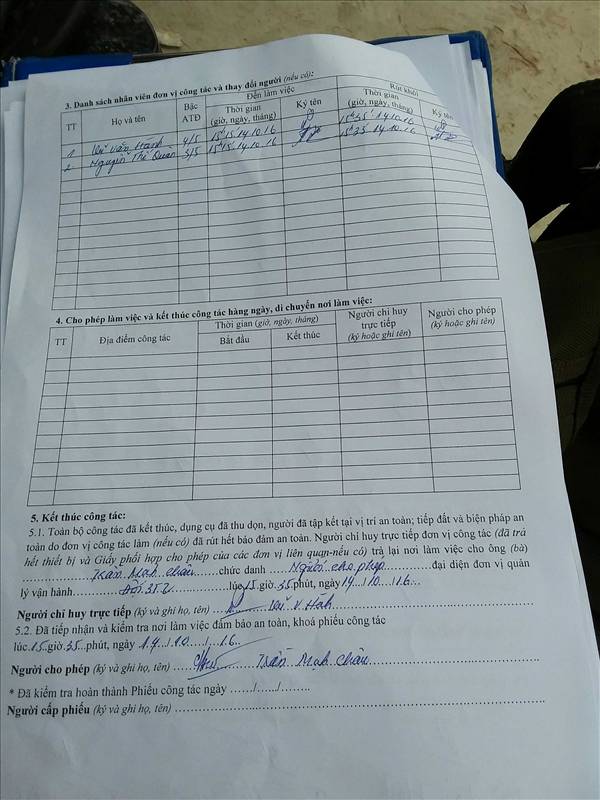 3. Danh sách nhân viên đơn vị công tác và thay đổi người (nếu có):
TT Họ và tên Bậc ATĐ Đến làm việc Rút khỏi
Thời gian (giờ, ngày, tháng) Ký tên Thời gian (giờ, ngày, tháng) Ký tên
1 Văn Hạnh 4/5 15h15' 14.10.16 15h35' 14.10.16
2 Nguyễn Thế Quân 3/5 15h15' 14.10.16 15h35' 14.10.16
4. Cho phép làm việc và kết thúc công tác hàng ngày, di chuyển nơi làm việc:
TT Địa điểm công tác Thời gian (giờ, ngày, tháng) Người chỉ huy trực tiếp (ký hoặc ghi tên) Người cho phép (ký hoặc ghi tên)
Bắt đầu Kết thúc
5. Kết thúc công tác:
5.1. Toàn bộ công tác đã kết thúc, dụng cụ đã thu dọn, người đã tập kết tại vị trí an toàn; tiếp đất và biện pháp an
toàn do đơn vị công tác làm (nếu có) đã rút hết bảo đảm an toàn. Người chỉ huy trực tiếp đơn vị công tác (đã trả
hết thiết bị và Giấy phối hợp cho phép của các đơn vị liên quan-nếu có) trả lại nơi làm việc cho ông (bà)
Trần Mạnh Châu chức danh Người cho phép đại diện đơn vị quản
lý vận hành Đội 35.2 lúc 15 giờ 35 phút, ngày 14/10/16
Người chỉ huy trực tiếp (ký và ghi họ, tên) V. Hạnh
5.2. Đã tiếp nhận và kiểm tra nơi làm việc đảm bảo an toàn, khoá phiếu công tác
lúc 15 giờ 35 phút, ngày 14/10/16
Người cho phép (ký và ghi họ, tên) Trần Mạnh Châu
* Đã kiểm tra hoàn thành Phiếu công tác ngày ....../....../........
Người cấp phiếu (ký và ghi họ, tên)